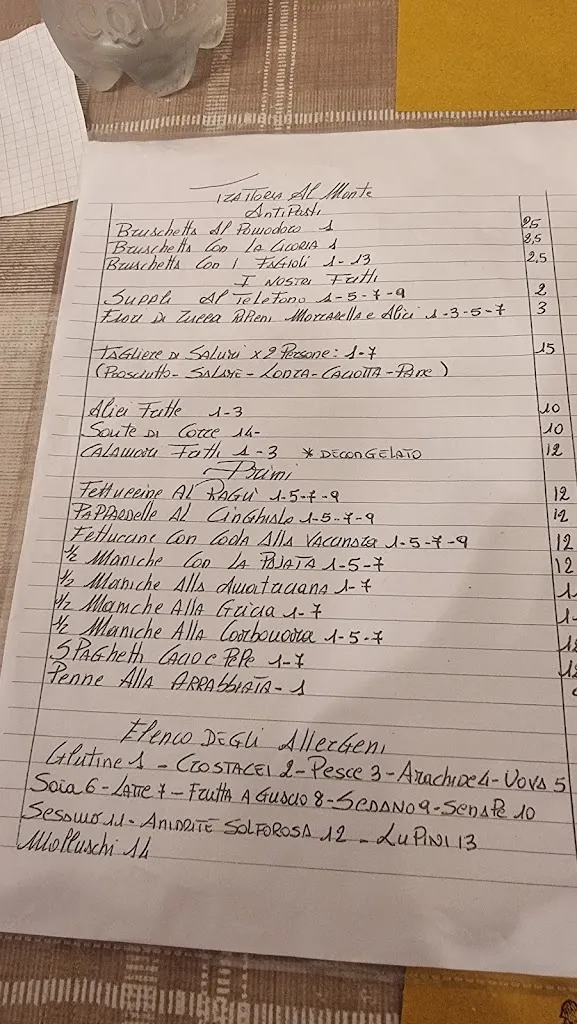 Trattoria Al Monte
Antipasti
Bruschetta Al Pomodoro 1 2,5
Bruschetta Con La Cicoria 1 2,5
Bruschetta Con I Fagioli 1-13 2,5
I Nostri Fritti
Supplì Al Telefono 1-5-7-9 2
Fiori Di Zucca Ripieni Mozzarella e Alici 1-3-5-7 3
Tagliere Di Salumi x 2 Persone: 1-7 15
(Prosciutto - Salame - Lonza - Caciotta - Pane)
Alici Fritte 1-3 10
Soute Di Cozze 14- 10
Calamari Fritti 1-3 * DECONGELATO 12
Primi
Fettuccine Al Ragù 1-5-7-9 12
Pappardelle Al Cinghiale 1-5-7-9 12
Fettuccine Con Coda Alla Vaccinara 1-5-7-9 12
1/2 Maniche Con La Pajata 1-5-7 12
1/2 Maniche Alla Amatriciana 1-7
1/2 Maniche Alla Gricia 1-7
1/2 Maniche Alla Carbonara 1-5-7
Spaghetti Cacio e Pepe 1-7
Penne Alla Arrabbiata - 1
Elenco Degli Allergeni
Glutine 1 - Crostacei 2 - Pesce 3 - Arachide 4 - Uova 5
Soia 6 - Latte 7 - Frutta A Guscio 8 - Sedano 9 - Senape 10
Sesamo 11 - Anidrite Solforosa 12 - Lupini 13
Molluschi 14